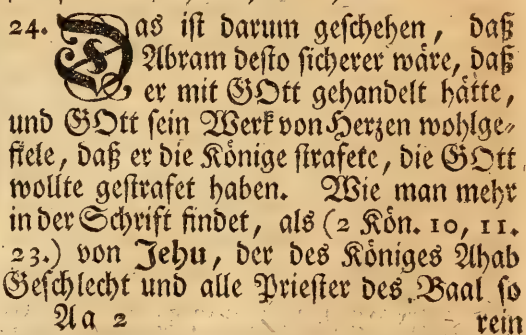 24. Das ist darum geschehen, daß
Abram desto sicherer wäre, daß
er mit GOtt gehandelt hätte,
und GOtt sein Werk von Herzen wohlge-
fiele, daß er die Könige strafete, die GOtt
wollte gestrafet haben. Wie man mehr
in der Schrift findet, als (2 Kön. 10, 11.
23.) von Jehu, der des Königes Ahab
Geschlecht und alle Priester des Baal so
Aa 2 rein